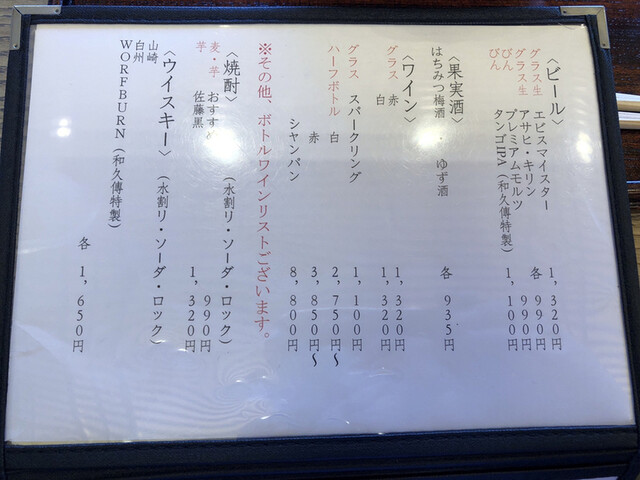 〈ビール〉
グラス生 エビスマイスター 1,320円
グラス生 アサヒ・キリン 各 990円
びん プレミアムモルツ 990円
びん タンゴIPA(和久傳特製) 1,100円
〈果実酒〉
はちみつ梅酒 ・ ゆず酒 各 935円
〈ワイン〉
グラス 赤 1,320円
白 1,320円
グラス スパークリング 1,100円
ハーフボトル 白 2,750円〜
赤 3,850円〜
シャンパン 8,800円
※その他、ボトルワインリストございます。
〈焼酎〉 (水割リ・ソーダ・ロック)
麦・芋 おすすめ 990円
芋 佐藤黒 1,320円
〈ウイスキー〉 (水割リ・ソーダ・ロック)
山崎
白州
WORFBURN(和久傳特製) 各 1,650円